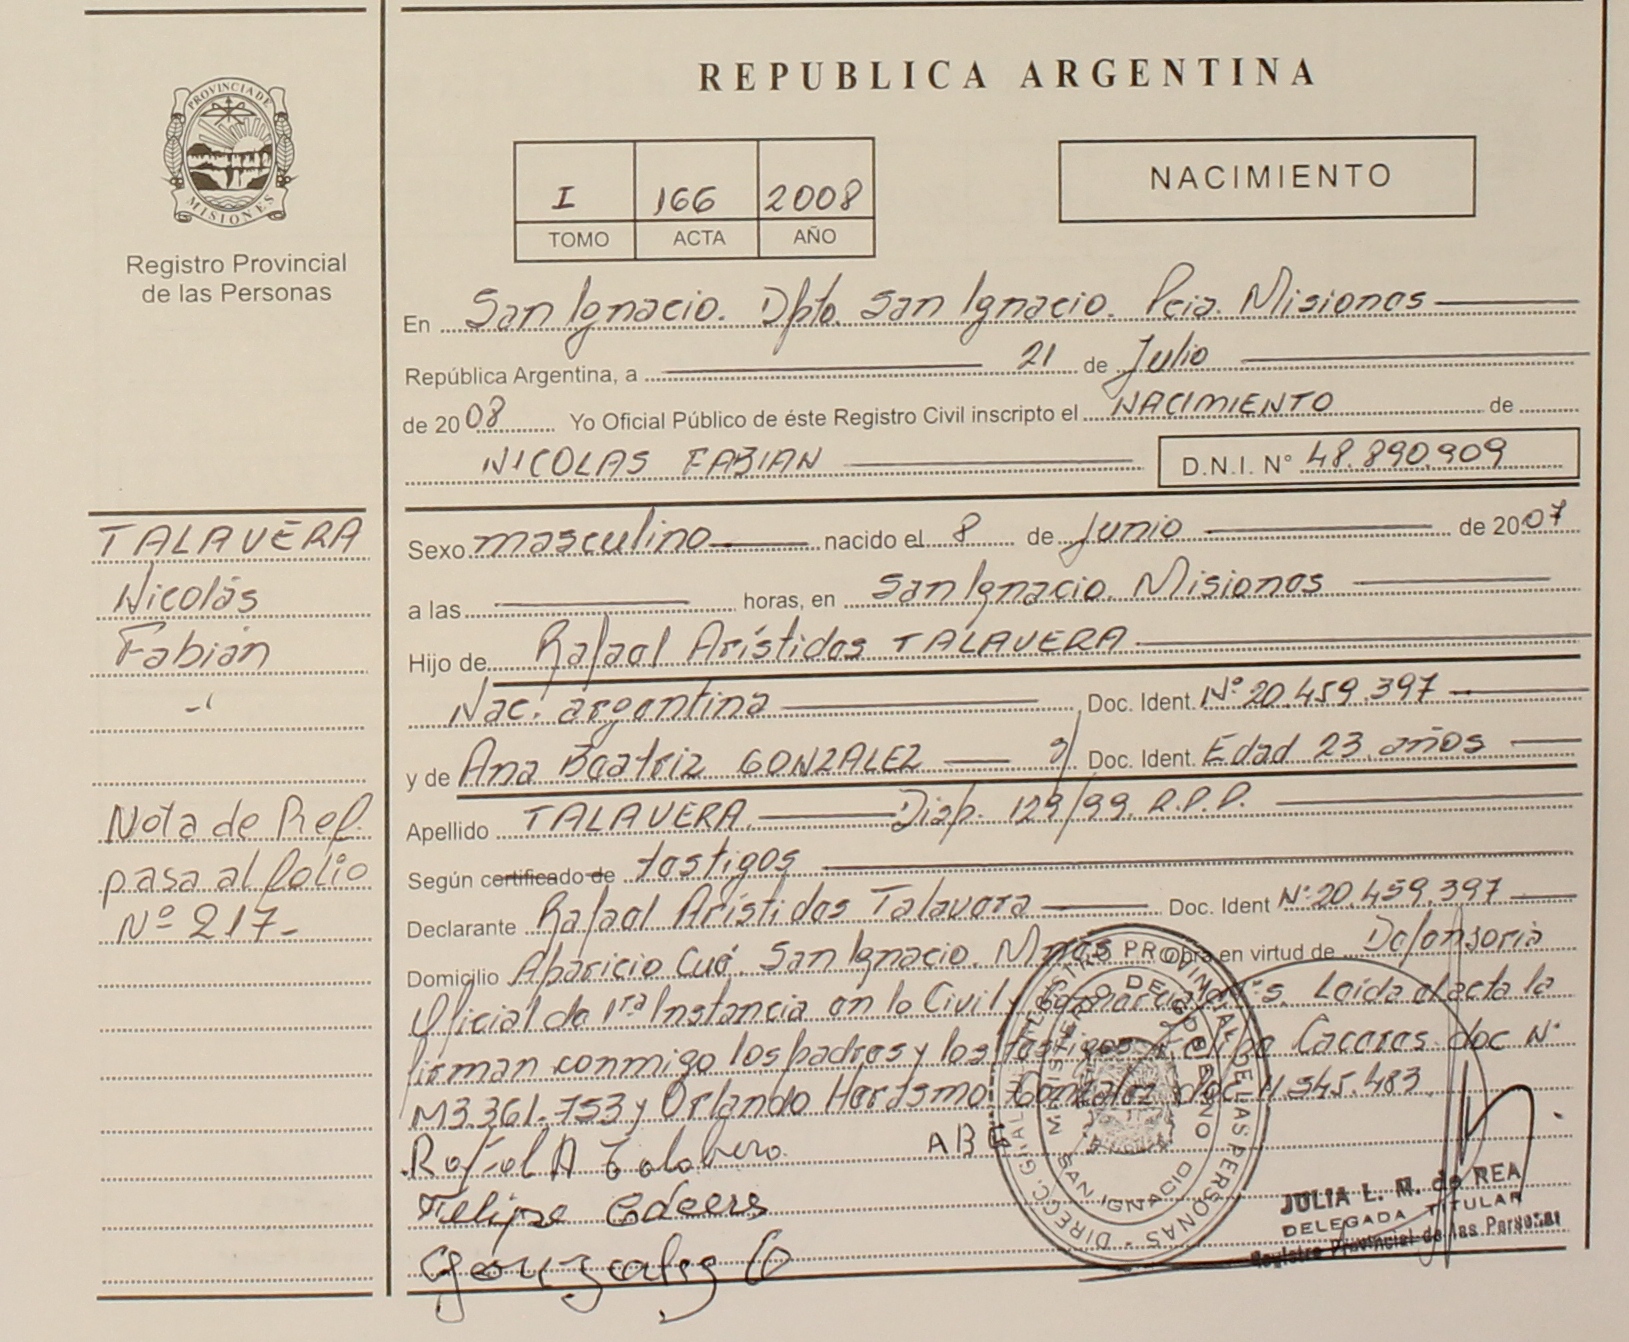 REPUBLICA ARGENTINA
PROVINCIA DE MISIONES
Registro Provincial
de las Personas
I 166 2008
TOMO ACTA AÑO
NACIMIENTO
En San Ignacio. Dpto. San Ignacio. Pcia. Misiones
República Argentina, a 21 de Julio
de 2008 Yo Oficial Público de éste Registro Civil inscripto el NACIMIENTO de
NICOLAS FABIAN D.N.I. N° 48.890.909
TALAVERA
Nicolás
Fabián
Nota de Ref.
pasa al folio
Nº 217-
Sexo masculino nacido el 8 de Junio de 2007
a las horas, en San Ignacio. Misiones
Hijo de Rafael Arístides TALAVERA
Nac. argentina Doc. Ident. Nº 20.459.397
y de Ana Beatriz GONZALEZ Doc. Ident. Edad 23 años
Apellido TALAVERA. Disp. 129/99. R.P.P.
Según certificado de testigos
Declarante Rafael Arístides Talavera Doc. Ident Nº 20.459.397
Domicilio Aparicio Cué. San Ignacio. Mnes Obra en virtud de Defensoria
Oficial de 1ra Instancia en lo Civil y Comercial Leida el acta la
firman conmigo los padres y los testigos Caceres doc Nº
M3.361.753 y Orlando Herasmo Gonzalez doc 11.545.483
Rafael A Talavera
Felipe
Gonzalez O
REGISTRO PROVINCIAL DE LAS PERSONAS
MINISTERIO DE GOBIERNO
SAN IGNACIO
JULIA L. M. de REA
DELEGADA TITULAR
Registro Provincial de las Personas